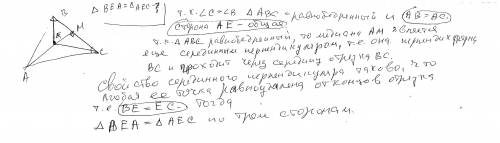 B
M
E
C
A
Δ BEA = Δ AEC - ?
т.к. ∠C = ∠B Δ ABC - равнобедренный и AB = AC.
Сторона AE - общая.
т.к. Δ ABC равнобедренный, то медиана AM является
еще серединным перпендикуляром, т.е. она перпендикулярна
BC и проходит через середину отрезка BC.
Свойство серединного перпендикуляра таково, что
любая его точка равноудалена от концов отрезка
т.е. BE = EC. Тогда
Δ BEA = Δ AEC по трем сторонам.